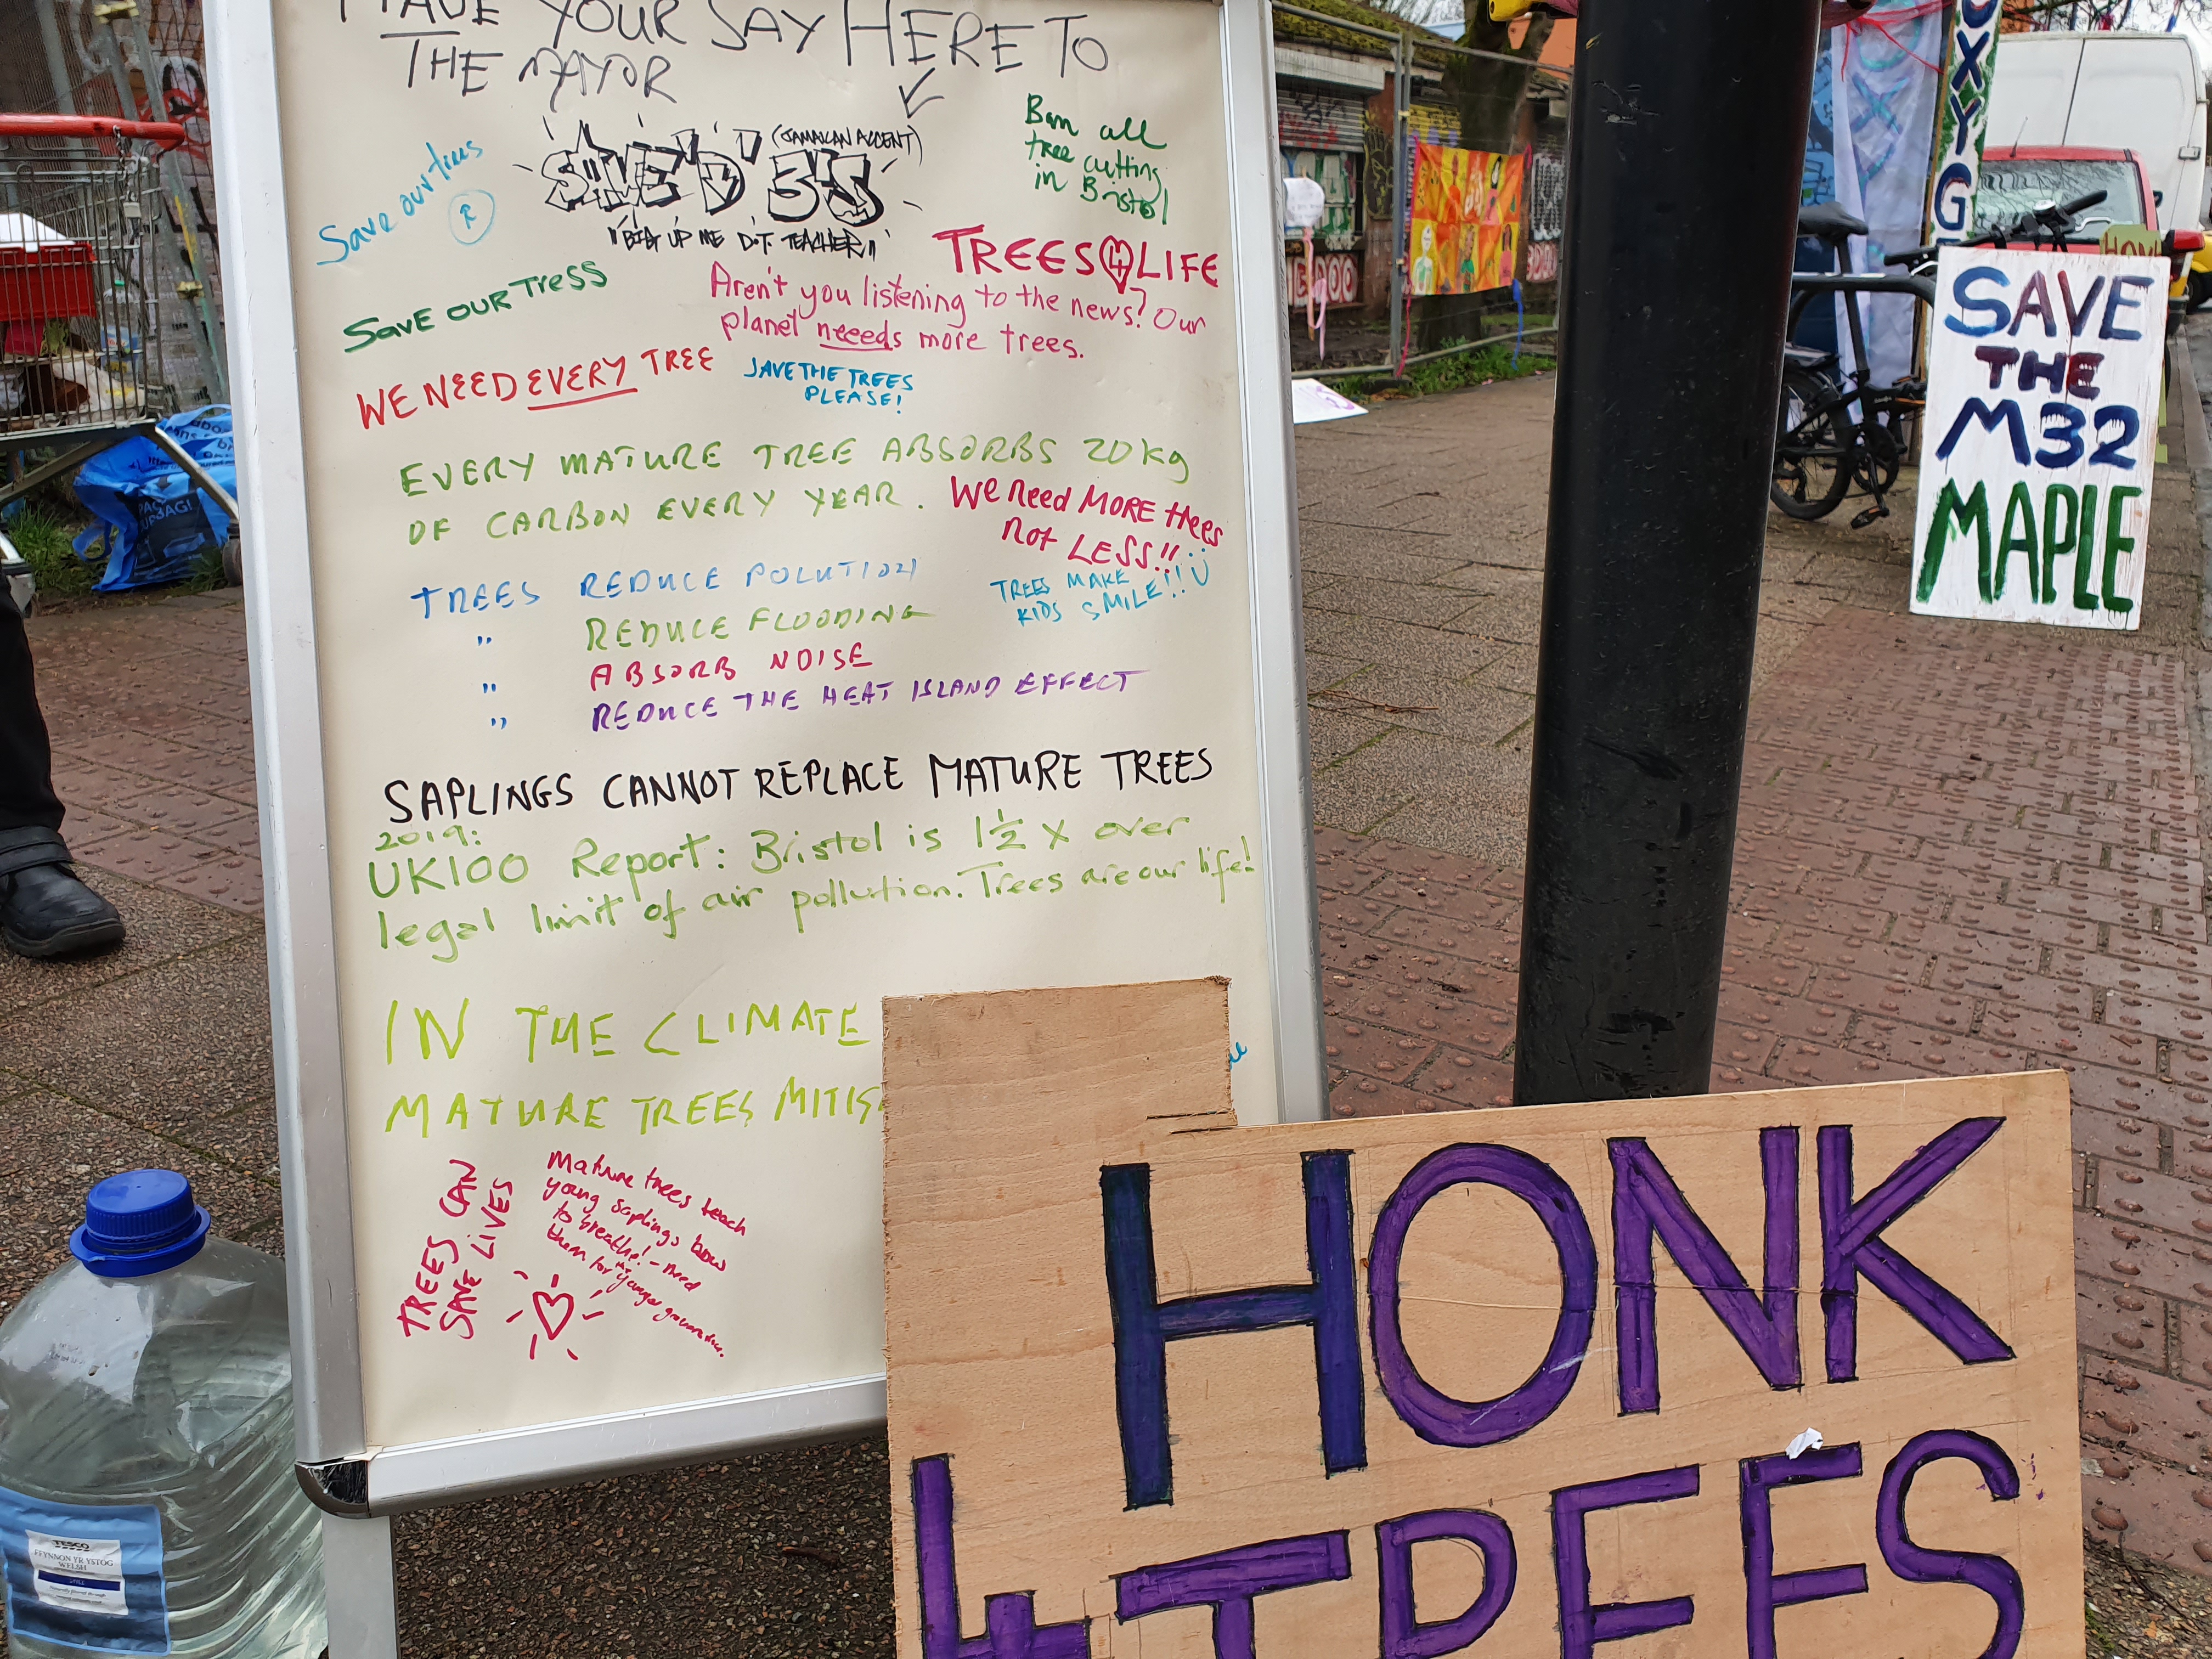 HAVE YOUR SAY HERE TO
THE MAYOR
Save our trees
SAVE 'D' 3'S
(JAMAICAN ACCENT)
"BIG UP ME D.T. TEACHER"
Ban all
tree cutting
in Bristol
TREES 4 LIFE
SavE OUR TrESS
Aren't you listening to the news? Our
planet neeeds more trees.
WE NEED EVERY TREE
SAVE THE TREES
PLEASE!
EVERY MATURE TREE ABSORBS 20kg
OF CARBON EVERY YEAR.
We need MORE trees
not LESS!!
TREES REDUCE POLUTION
" REDUCE FLOODING
" ABSORB NOISE
" REDUCE THE HEAT ISLAND EFFECT
TREES MAKE
KIDS SMILE!!
SAPLINGS CANNOT REPLACE MATURE TREES
2019:
UK100 Report: Bristol is 1½ x over
legal limit of air pollution. Trees are our life!
IN THE CLIMATE
MATURE TREES MITIG
TREES CAN
SAVE LIVES
Mature trees teach
young saplings how
to breathe! - need
them for younger
HONK
4 TREES
SAVE
THE
M32
MAPLE
OXYGE
TESCO
FFYNNON YR YSTOG
WELSH